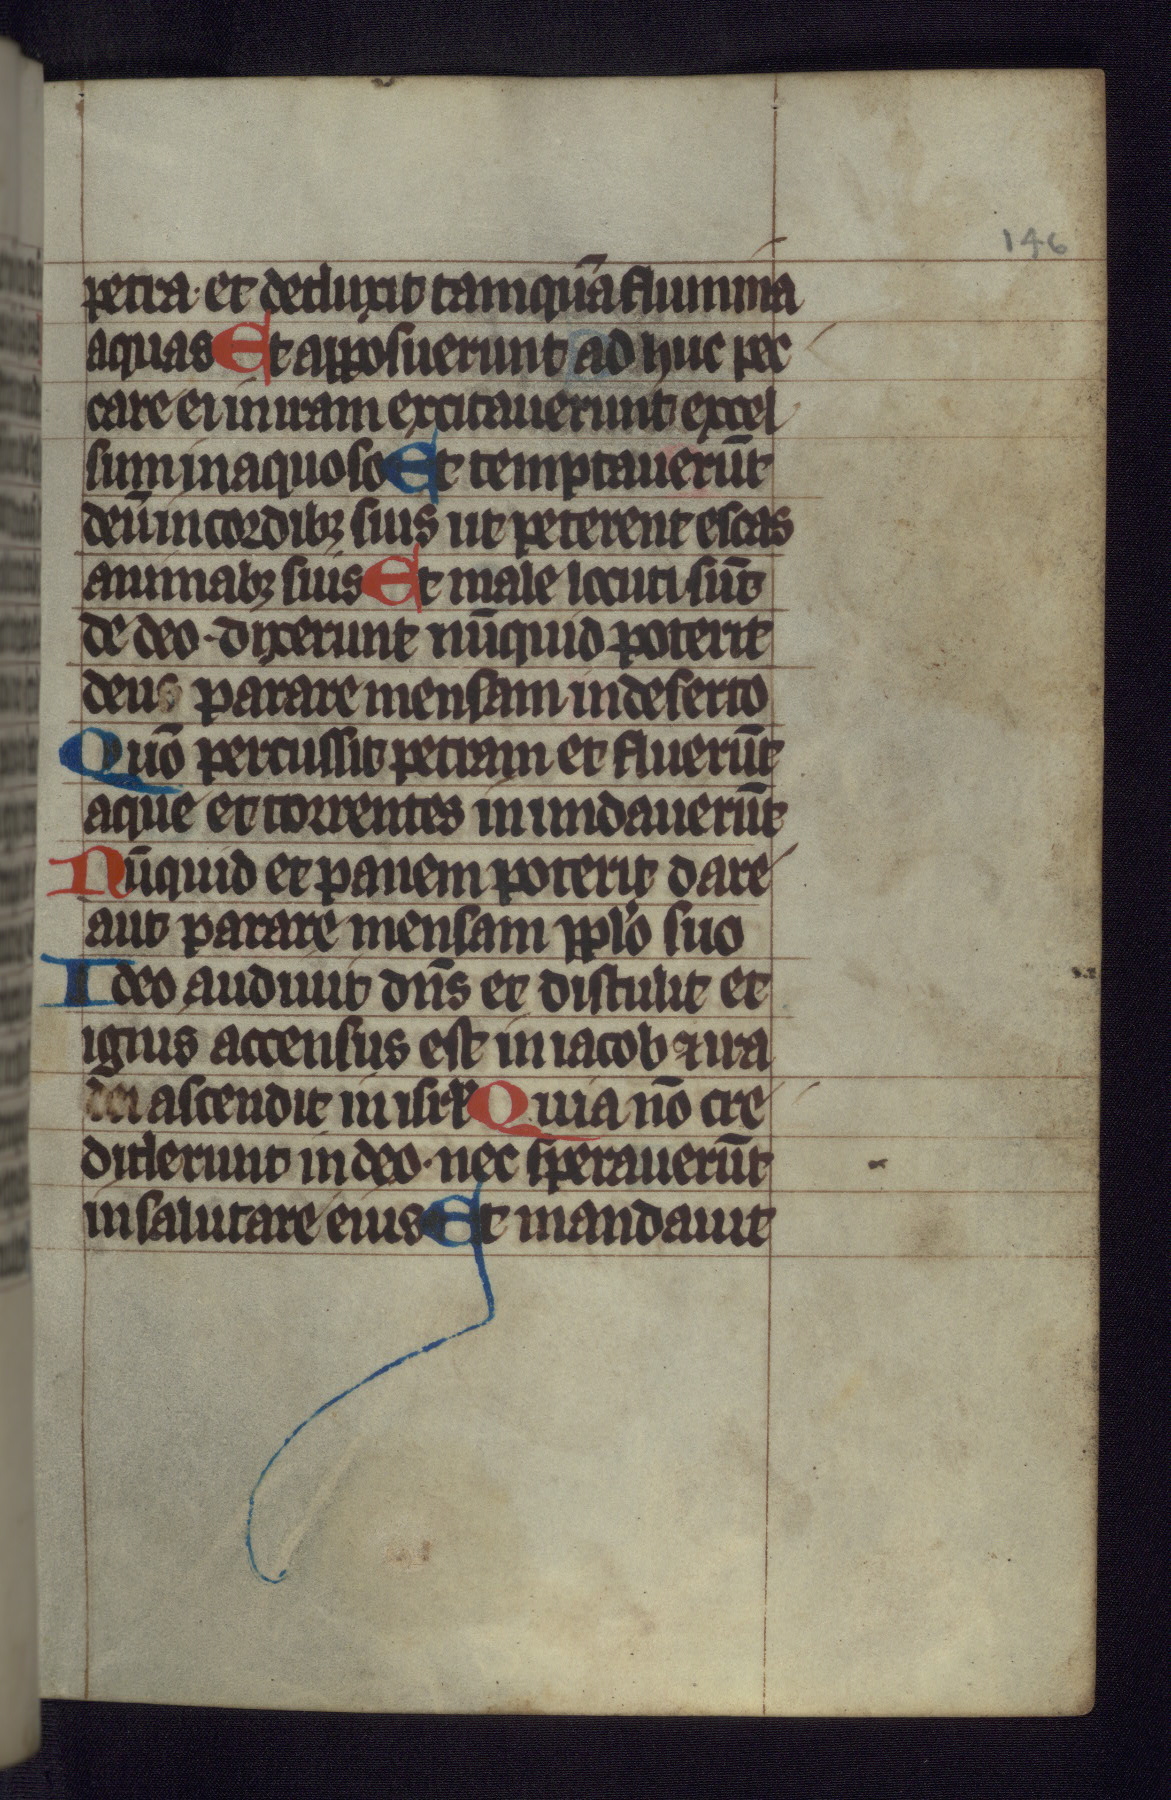 146
petra· et deduxit tamquā flumina
aquas Et apposuerunt ad huc pec
care ei in iram excitauerunt excel
sum in aquoso Et temptauerūt
deū in cordibꝫ suis ut peterent escas
animabꝫ suis Et male locuti sūt
de deo· dixerunt nūquid poterit
deus parare mensam in deserto
Quō percussit petram et fluxerūt
aque et torrentes inundauerūt
Nūquid et panem poterit dare
aut parare mensam pplo suo
Ideo audiuit dn̄s et distulit et
ignis accensus est in iacob ⁊ ira
dei ascendit in isrł Quia nō cre
diderunt in deo· nec sperauerūt
in salutare eius Et mandauit